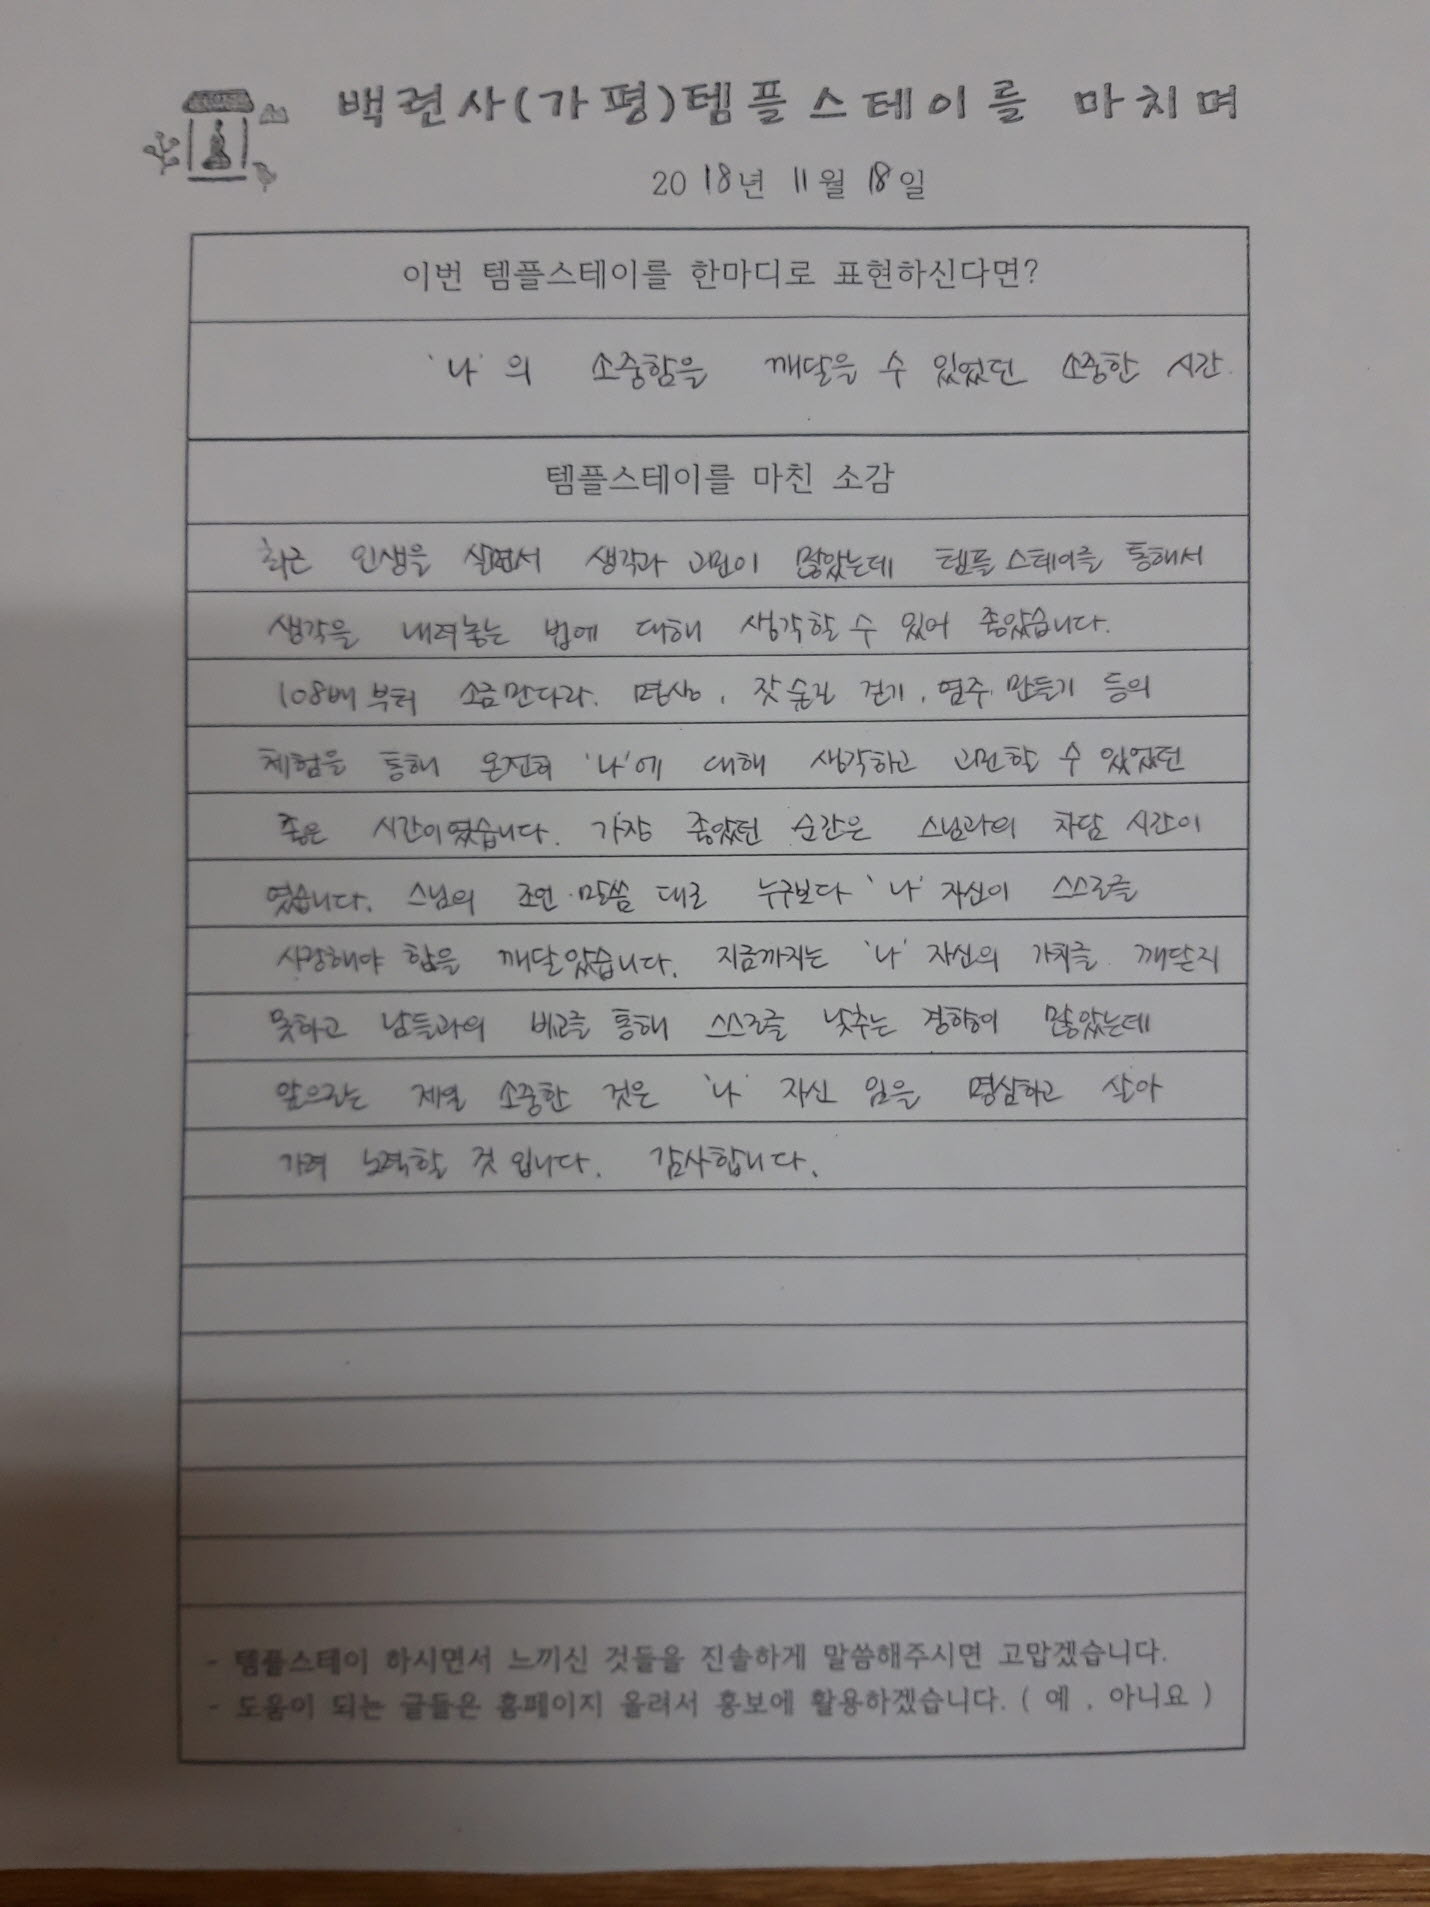 백련사(가평)템플스테이를 마치며
2018년 11월 18일
이번 템플스테이를 한마디로 표현하신다면?
'나'의 소중함을 깨달을 수 있었던 소중한 시간.
템플스테이를 마친 소감
최근 인생을 살면서 생각과 고민이 많았는데 템플스테이를 통해서
생각을 내려놓는 법에 대해 생각할 수 있어 좋았습니다.
108배부터 소금만다라, 명상, 잣숲길 걷기, 염주 만들기 등의
체험을 통해 온전히 '나'에 대해 생각하고 고민할 수 있었던
좋은 시간이였습니다. 가장 좋았던 순간은 스님과의 차담 시간이
였습니다. 스님의 조언·말씀 대로 누구보다 '나' 자신이 스스로를
사랑해야 함을 깨달았습니다. 지금까지는 '나' 자신의 가치를 깨닫지
못하고 남들과의 비교를 통해 스스로를 낮추는 경향이 많았는데
앞으로는 제일 소중한 것은 '나' 자신 임을 명심하고 살아
가려 노력할 것 입니다. 감사합니다.
- 템플스테이 하시면서 느끼신 것들을 진솔하게 말씀해주시면 고맙겠습니다.
- 도움이 되는 글들은 홈페이지 올려서 홍보에 활용하겠습니다. ( 예 , 아니요 )